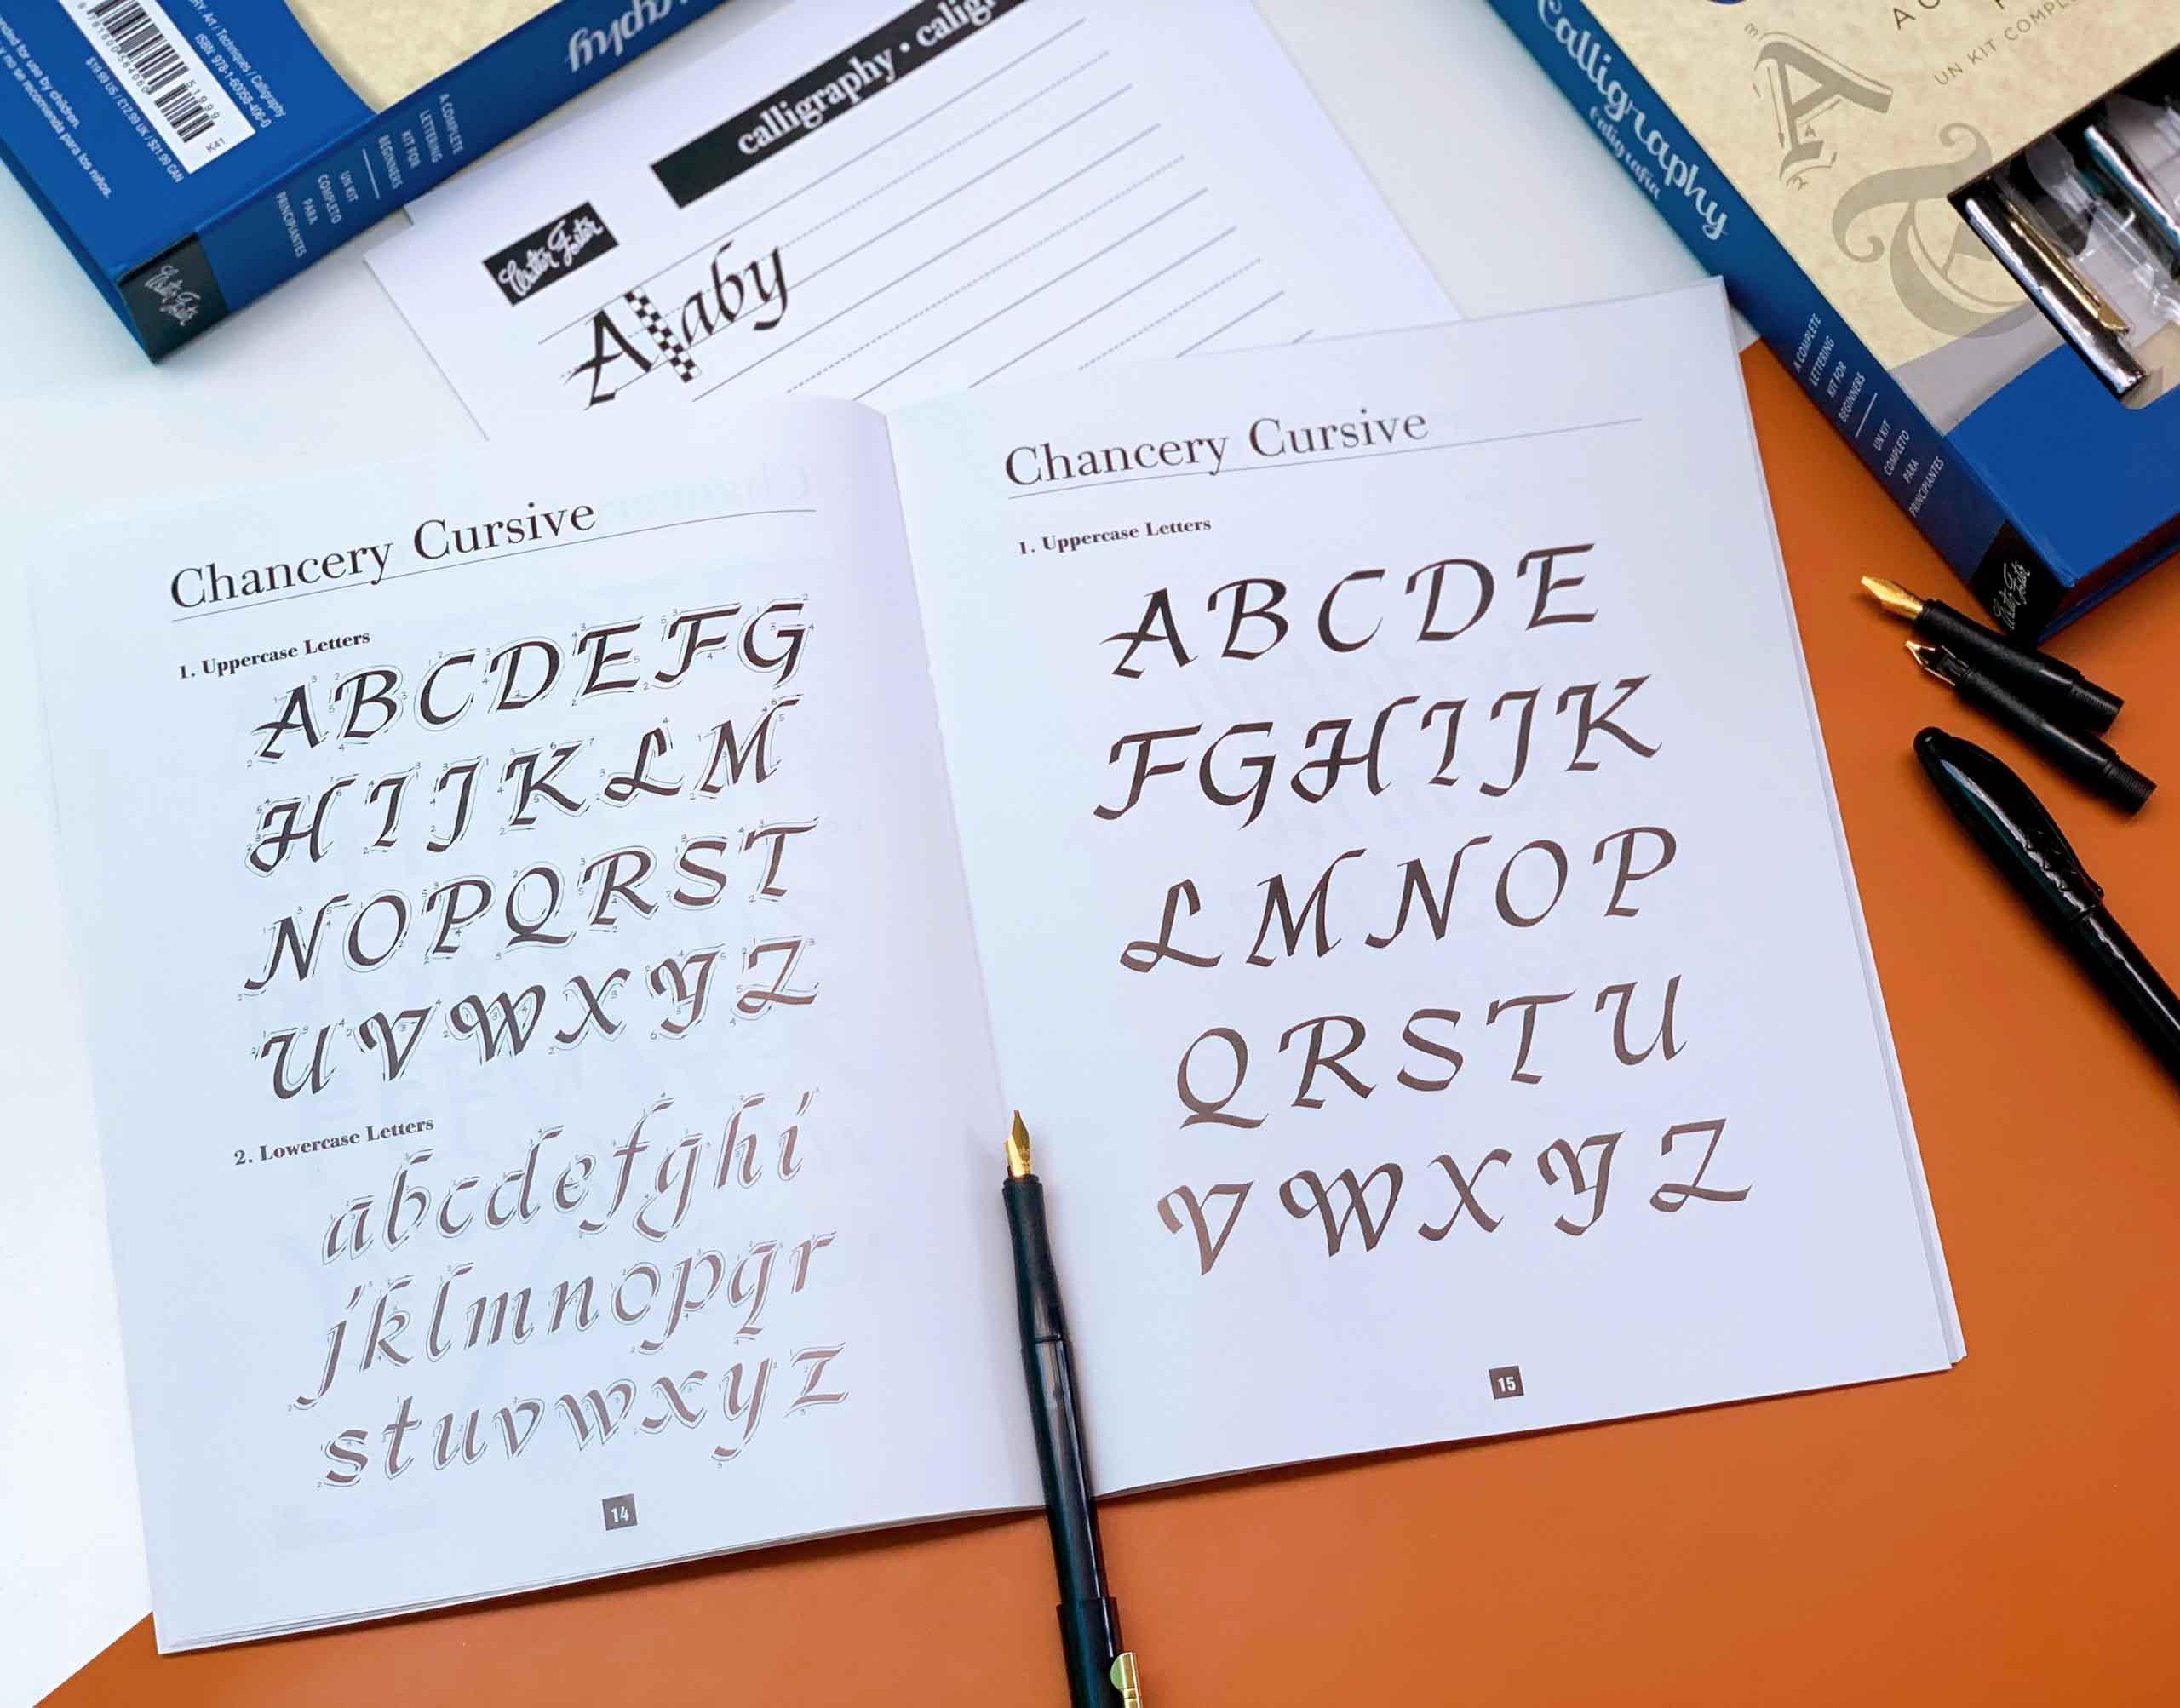 calligraphy
ISBN: 978-1-60058-406-0
$19.99 US / £12.99 UK / $21.99 CAN
51999
K41
A COMPLETE
LETTERING
KIT FOR
BEGINNERS
UN KIT
COMPLETO
PARA
PRINCIPIANTES
Walter Foster
calligraphy • calig
Walter Foster
A aby
Calligraphy
caligrafía
A COMPLETE
LETTERING
KIT FOR
BEGINNERS
UN KIT
COMPLETO
PARA
PRINCIPIANTES
Walter Foster
A
UN KIT COMPL
Chancery Cursive
1. Uppercase Letters
A B C D E F G
H I J K L M
N O P Q R S T
U V W X Y Z
2. Lowercase Letters
a b c d e f g h i
j k l m n o p q r
s t u v w x y z
14
Chancery Cursive
1. Uppercase Letters
A B C D E
F G H I J K
L M N O P
Q R S T U
V W X Y Z
15